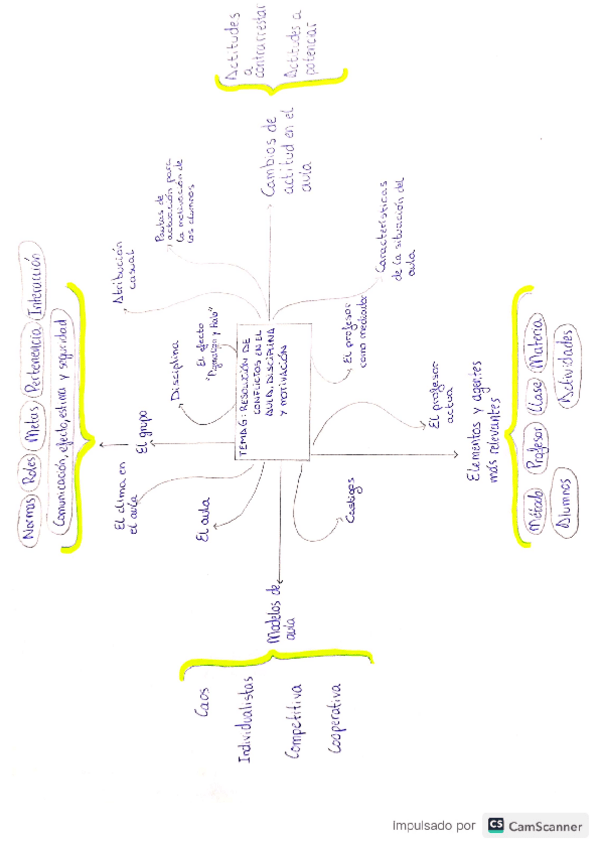 Normas Roles Metas Pertenencia Interacción
Comunicación, afecto, estima y seguridad
El grupo
El clima en
el aula
El aula
Disciplina
El efecto
"Pigmalión y Halo"
Atribución
casual
Pautas de
actuación para
la motivación de
los alumnos
TEMA 6: RESOLUCIÓN DE
CONFLICTOS EN EL
AULA. DISCIPLINA
Y MOTIVACIÓN
Cambios de
actitud en el
aula
Actitudes
a
contrarrestar
Actitudes a
potenciar
Modelos de
aula
Caos
Individualistas
Competitiva
Cooperativa
Castigos
El profesor
como mediador
Características
de la situación del
aula
El profesor
actúa
Elementos y agentes
más relevantes
Método Profesor Clase Materia
Alumnos Actividades
Impulsado por CS CamScanner